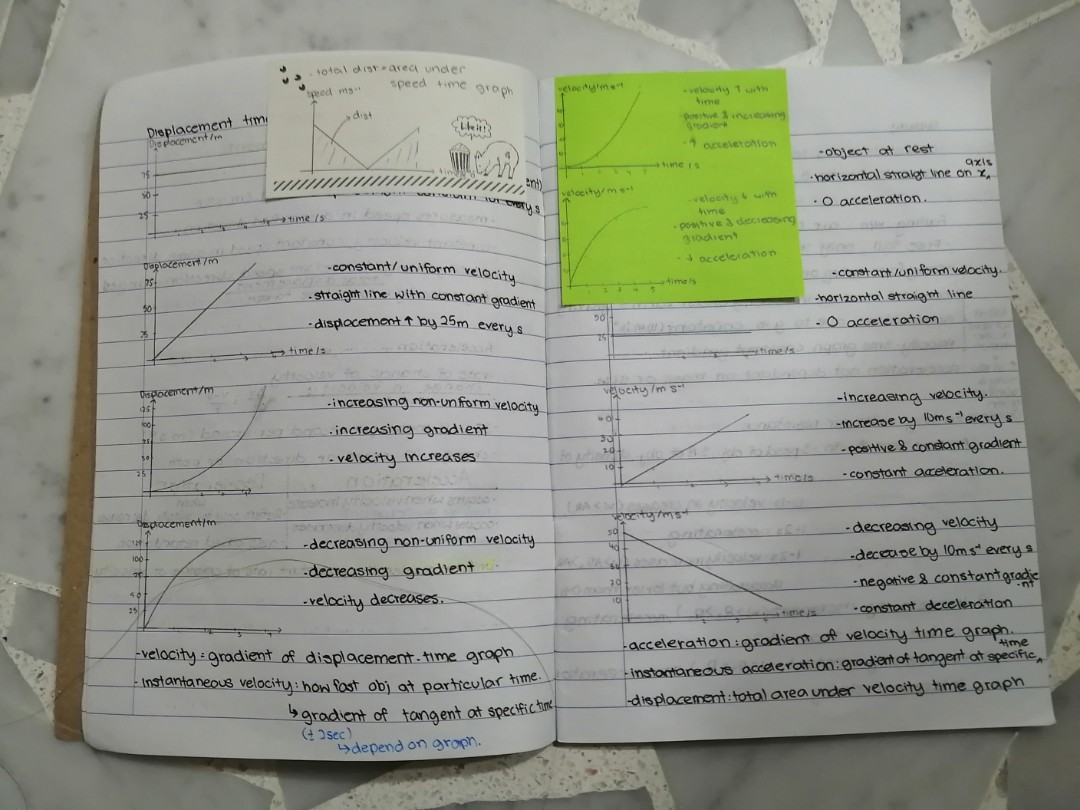 . total dist = area under
speed time graph
speed ms⁻¹
dist
Like it!
Displacement tim
Displacement/m
75
50
25
time /s
every s
Displacement/m
75
50
25
time/s
-constant/uniform velocity
-straight line with constant gradient
-displacement ↑ by 25m every s
Displacement/m
125
100
75
50
25
-increasing non-uniform velocity
-increasing gradient
-velocity increases
Displacement/m
100
75
25
-decreasing non-uniform velocity
-decreasing gradient
-velocity decreases.
-velocity : gradient of displacement-time graph
-instantaneous velocity: how fast obj at particular time.
↳ gradient of tangent at specific time
↳ depend on graph.
velocity/m s⁻¹
time /s
-velocity ↑ with
time
-positive & increasing
gradient
-↑ acceleration
velocity/m s⁻¹
time/s
-velocity ↓ with
time
-positive & decreasing
gradient
-↓ acceleration
-object at rest
-horizontal straigt line on x axis
. 0 acceleration.
50
25
time/s
-constant/uniform velocity.
-horizontal straight line
- 0 acceleration
velocity/m s⁻¹
40
30
20
10
time/s
-increasing velocity.
-increase by 10ms⁻¹ every s
-positive & constant gradient
-constant acceleration.
velocity/ms⁻¹
50
40
30
20
10
time/s
-decreasing velocity
-decease by 10ms⁻¹ every s
-negative & constant gradie
-nt
-constant deceleration
-acceleration : gradient of velocity time graph.
-instantaneous acceleration: gradient of tangent at specific time
-displacement: total area under velocity time graph